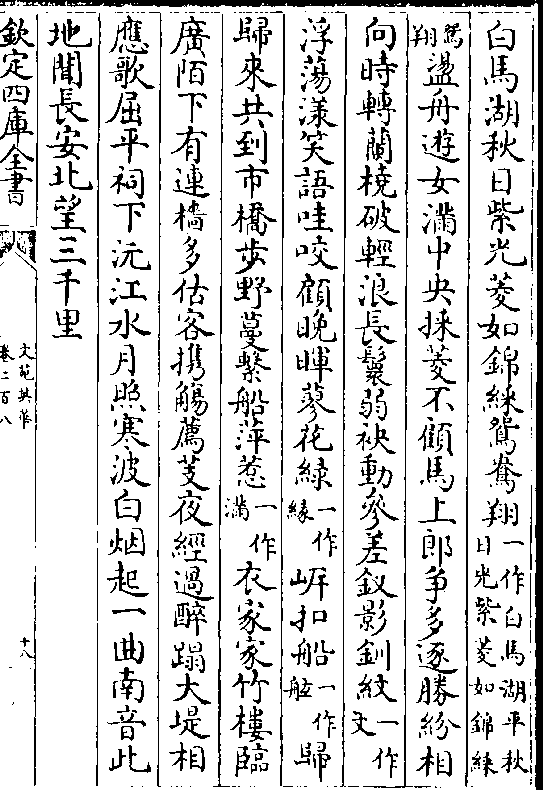 白馬湖秋日紫光菱如錦綵鴛鴦翔一作白馬湖平秋日光紫菱如錦綵
鴛翔盪舟遊女滿中央採菱不顧馬上郎争多逐勝紛相
向時轉蘭橈破輕浪長鬟弱袂動參差釵影釧紋一作文
浮蕩漾笑語哇咬顧晚暉蓼花緑一作緣㟁扣船一作舷歸
歸來共到市橋步野蔓繫船萍惹一作滿衣家家竹樓臨
廣陌下有連檣多估客携觴薦芰夜經過醉蹋大堤相
應歌屈平祠下沅江水月照寒波白烟起一曲南音此
地聞長安北望三千里
欽定四庫全書
文苑英華
卷二百八
十八